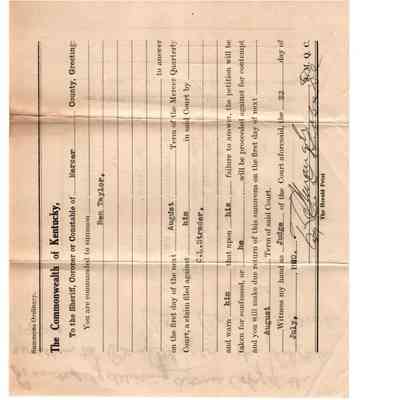 Summons Ordinary.
The Commonwealth of Kentucky,
To the Sheriff, Coroner or Constable of Mercer County, Greeting:
You are commanded to summon
Ben Taylor,
to answer
on the first day of the next August Term of the Mercer Quarterly
Court, a claim filed against him in said Court by
C.L.Strader,
and warn him that upon his failure to answer, the petition will be
taken for confessed, or he will be proceeded against for contempt
and you will make due return of this summons on the first day of next
August Term of said Court.
Witness my hand as Judge of the Court aforesaid, the 22 day of
July, 19
M. Q. C.
The Herald Print